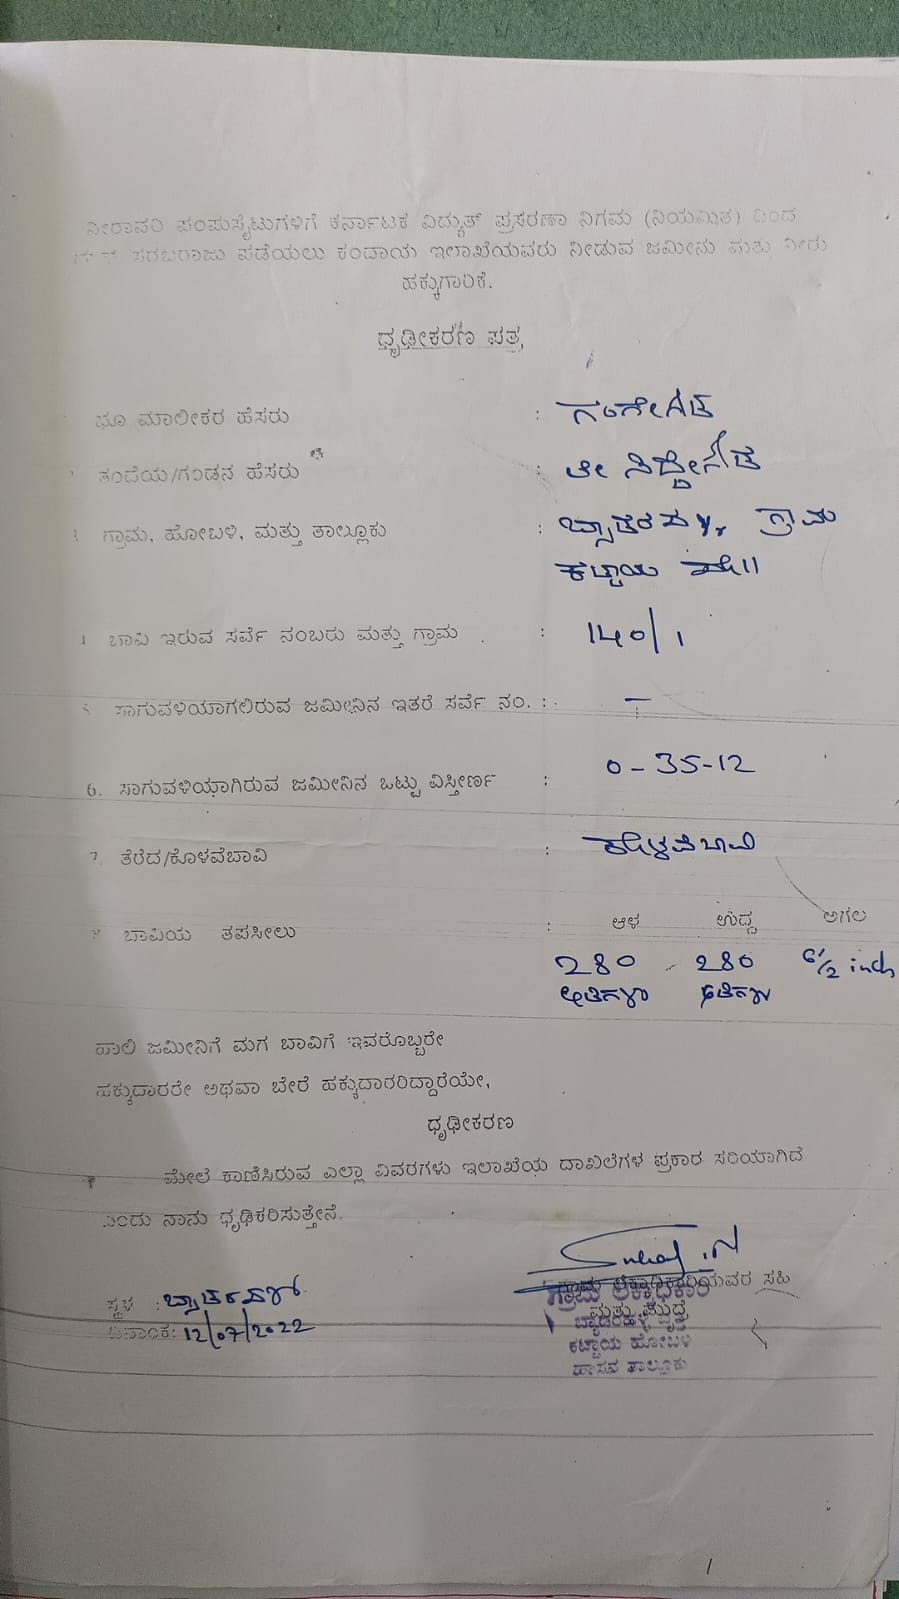 ನೀರಾವರಿ ಪಂಪುಸೈಟುಗಳಿಗೆ ಕರ್ನಾಟಕ ವಿದ್ಯುತ್ ಪ್ರಸರಣಾ ನಿಗಮ (ನಿಯಮಿತ) ದಿಂದ
ಸರಬರಾಜು ಪಡೆಯಲು ಕಂದಾಯ ಇಲಾಖೆಯವರು ನೀಡುವ ಜಮೀನು ಮತ್ತು ನೀರು
ಹಕ್ಕುಗಾರಿಕೆ.
ಧೃಢೀಕರಣ ಪತ್ರ
ಭೂ ಮಾಲೀಕರ ಹೆಸರು :
ತಂದೆಯ/ಗಂಡನ ಹೆಸರು :
ಗ್ರಾಮ, ಹೋಬಳಿ, ಮತ್ತು ತಾಲ್ಲೂಕು : ಗ್ರಾಮ
ಕಟ್ಟಾಯ ಹೋ||
ಬಾವಿ ಇರುವ ಸರ್ವೆ ನಂಬರು ಮತ್ತು ಗ್ರಾಮ : 140/1
ಸಾಗುವಳಿಯಾಗಲಿರುವ ಜಮೀನಿನ ಇತರೆ ಸರ್ವೆ ನಂ. : -
6. ಸಾಗುವಳಿಯಾಗಿರುವ ಜಮೀನಿನ ಒಟ್ಟು ವಿಸ್ತೀರ್ಣ : 0-35-12
7 ತೆರೆದ/ಕೊಳವೆಬಾವಿ : ಕೊಳವೆಬಾವಿ
ಬಾವಿಯ ತಪಸೀಲು : ಆಳ ಉದ್ದ ಅಗಲ
280 280 6½ inch
ಅಡಿಗಳು ಅಡಿಗಳು
ಹಾಲಿ ಜಮೀನಿಗೆ ಮಗ ಬಾವಿಗೆ ಇವರೊಬ್ಬರೇ
ಹಕ್ಕುದಾರರೇ ಅಥವಾ ಬೇರೆ ಹಕ್ಕುದಾರರಿದ್ದಾರೆಯೇ,
ಧೃಢೀಕರಣ
ಮೇಲೆ ಕಾಣಿಸಿರುವ ಎಲ್ಲಾ ವಿವರಗಳು ಇಲಾಖೆಯ ದಾಖಲೆಗಳ ಪ್ರಕಾರ ಸರಿಯಾಗಿದೆ
ಎಂದು ನಾನು ಧೃಢಿಕರಿಸುತ್ತೇನೆ.
ಗ್ರಾಮ ಲೆಕ್ಕಾಧಿಕಾರಿಯವರ ಸಹಿ
ಮತ್ತು ಮುದ್ರೆ
ಸ್ಥಳ :
ದಿನಾಂಕ: 12/07/2022
ಗ್ರಾಮ ಲೆಕ್ಕಾಧಿಕಾರಿ
ಬ್ಯಾಡರಹಳ್ಳಿ ವೃತ್ತ
ಕಟ್ಟಾಯ ಹೋಬಳಿ
ಹಾಸನ ತಾಲ್ಲೂಕು